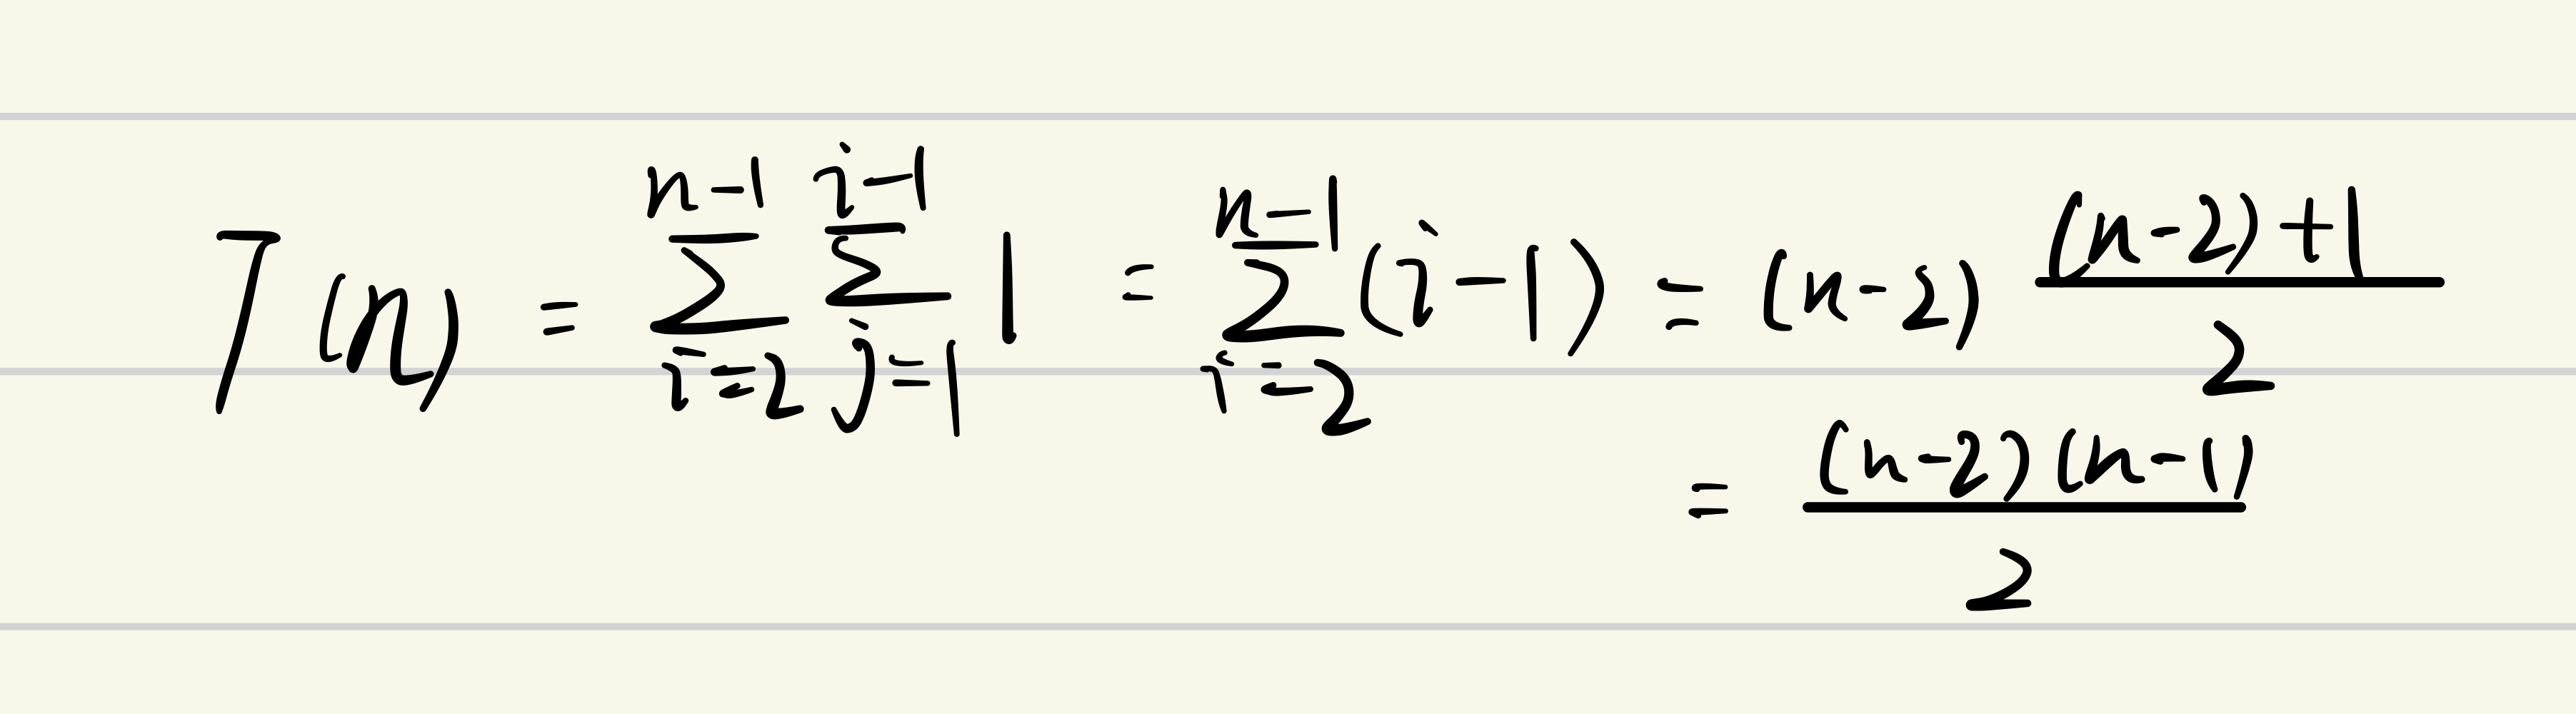 T(n) = \sum_{i=2}^{n-1} \sum_{j=1}^{i-1} 1 = \sum_{i=2}^{n-1} (i-1) = (n-2) \frac{(n-2)+1}{2}
= \frac{(n-2)(n-1)}{2}